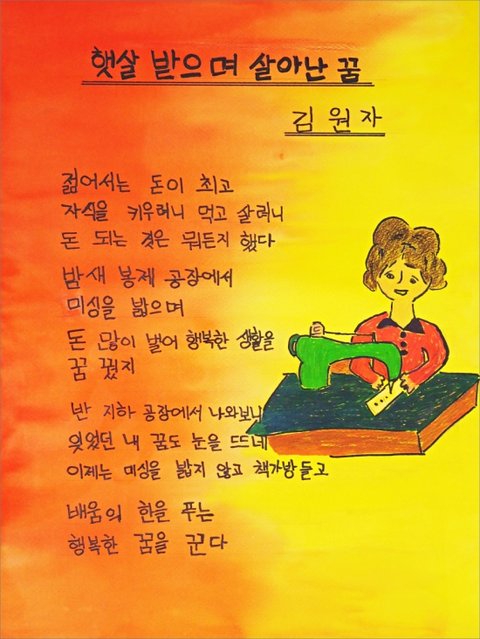 햇살 받으며 살아난 꿈
김원자
젊어서는 돈이 최고
자식을 키우려니 먹고 살려니
돈 되는 것은 뭐든지 했다
밤새 봉제 공장에서
미싱을 밟으며
돈 많이 벌어 행복한 생활을
꿈 꿨지
반 지하 공장에서 나와보니
잊었던 내 꿈도 눈을 뜨네
이제는 미싱을 밟지 않고 책가방들고
배움의 한을 푸는
행복한 꿈을 꾼다